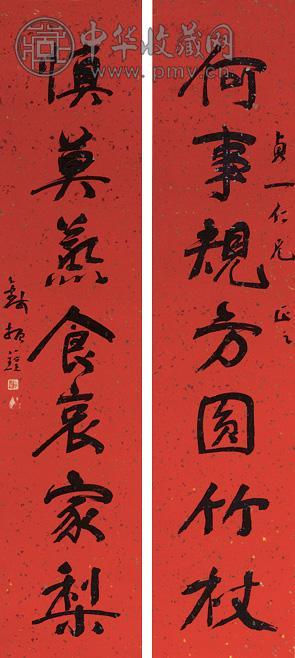 中华收藏网
www.pmv.cn
貞一仁兄 正之
何事規方圓竹杖
慎莫蒸食哀家梨
錢振鍠